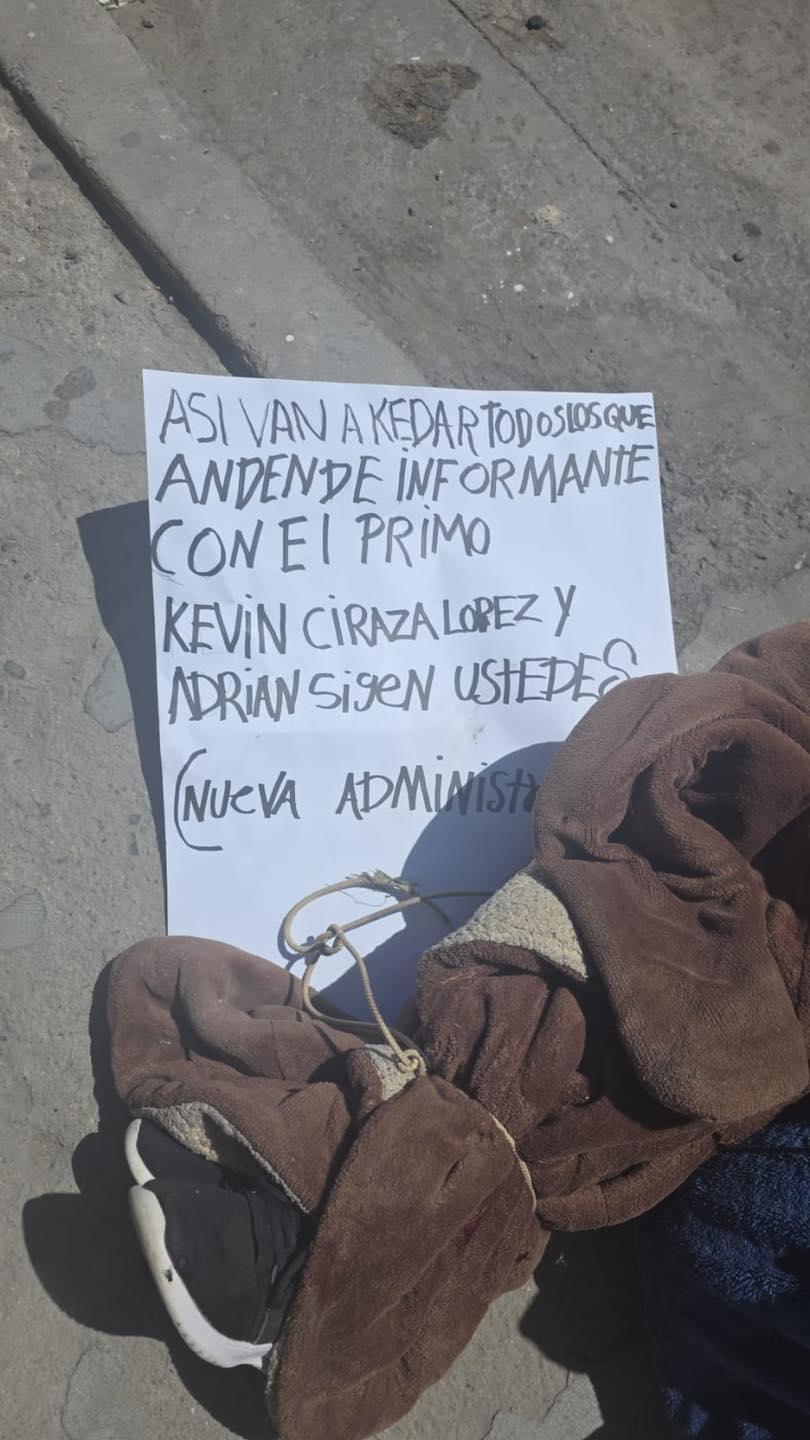 ASI VAN A KEDAR TODOS LOS QUE
ANDEN DE INFORMANTE
CON El PRIMO
KEVIN CIRAZA LOPEZ Y
ADRIAN SigEN USTEDES
(NUEVA